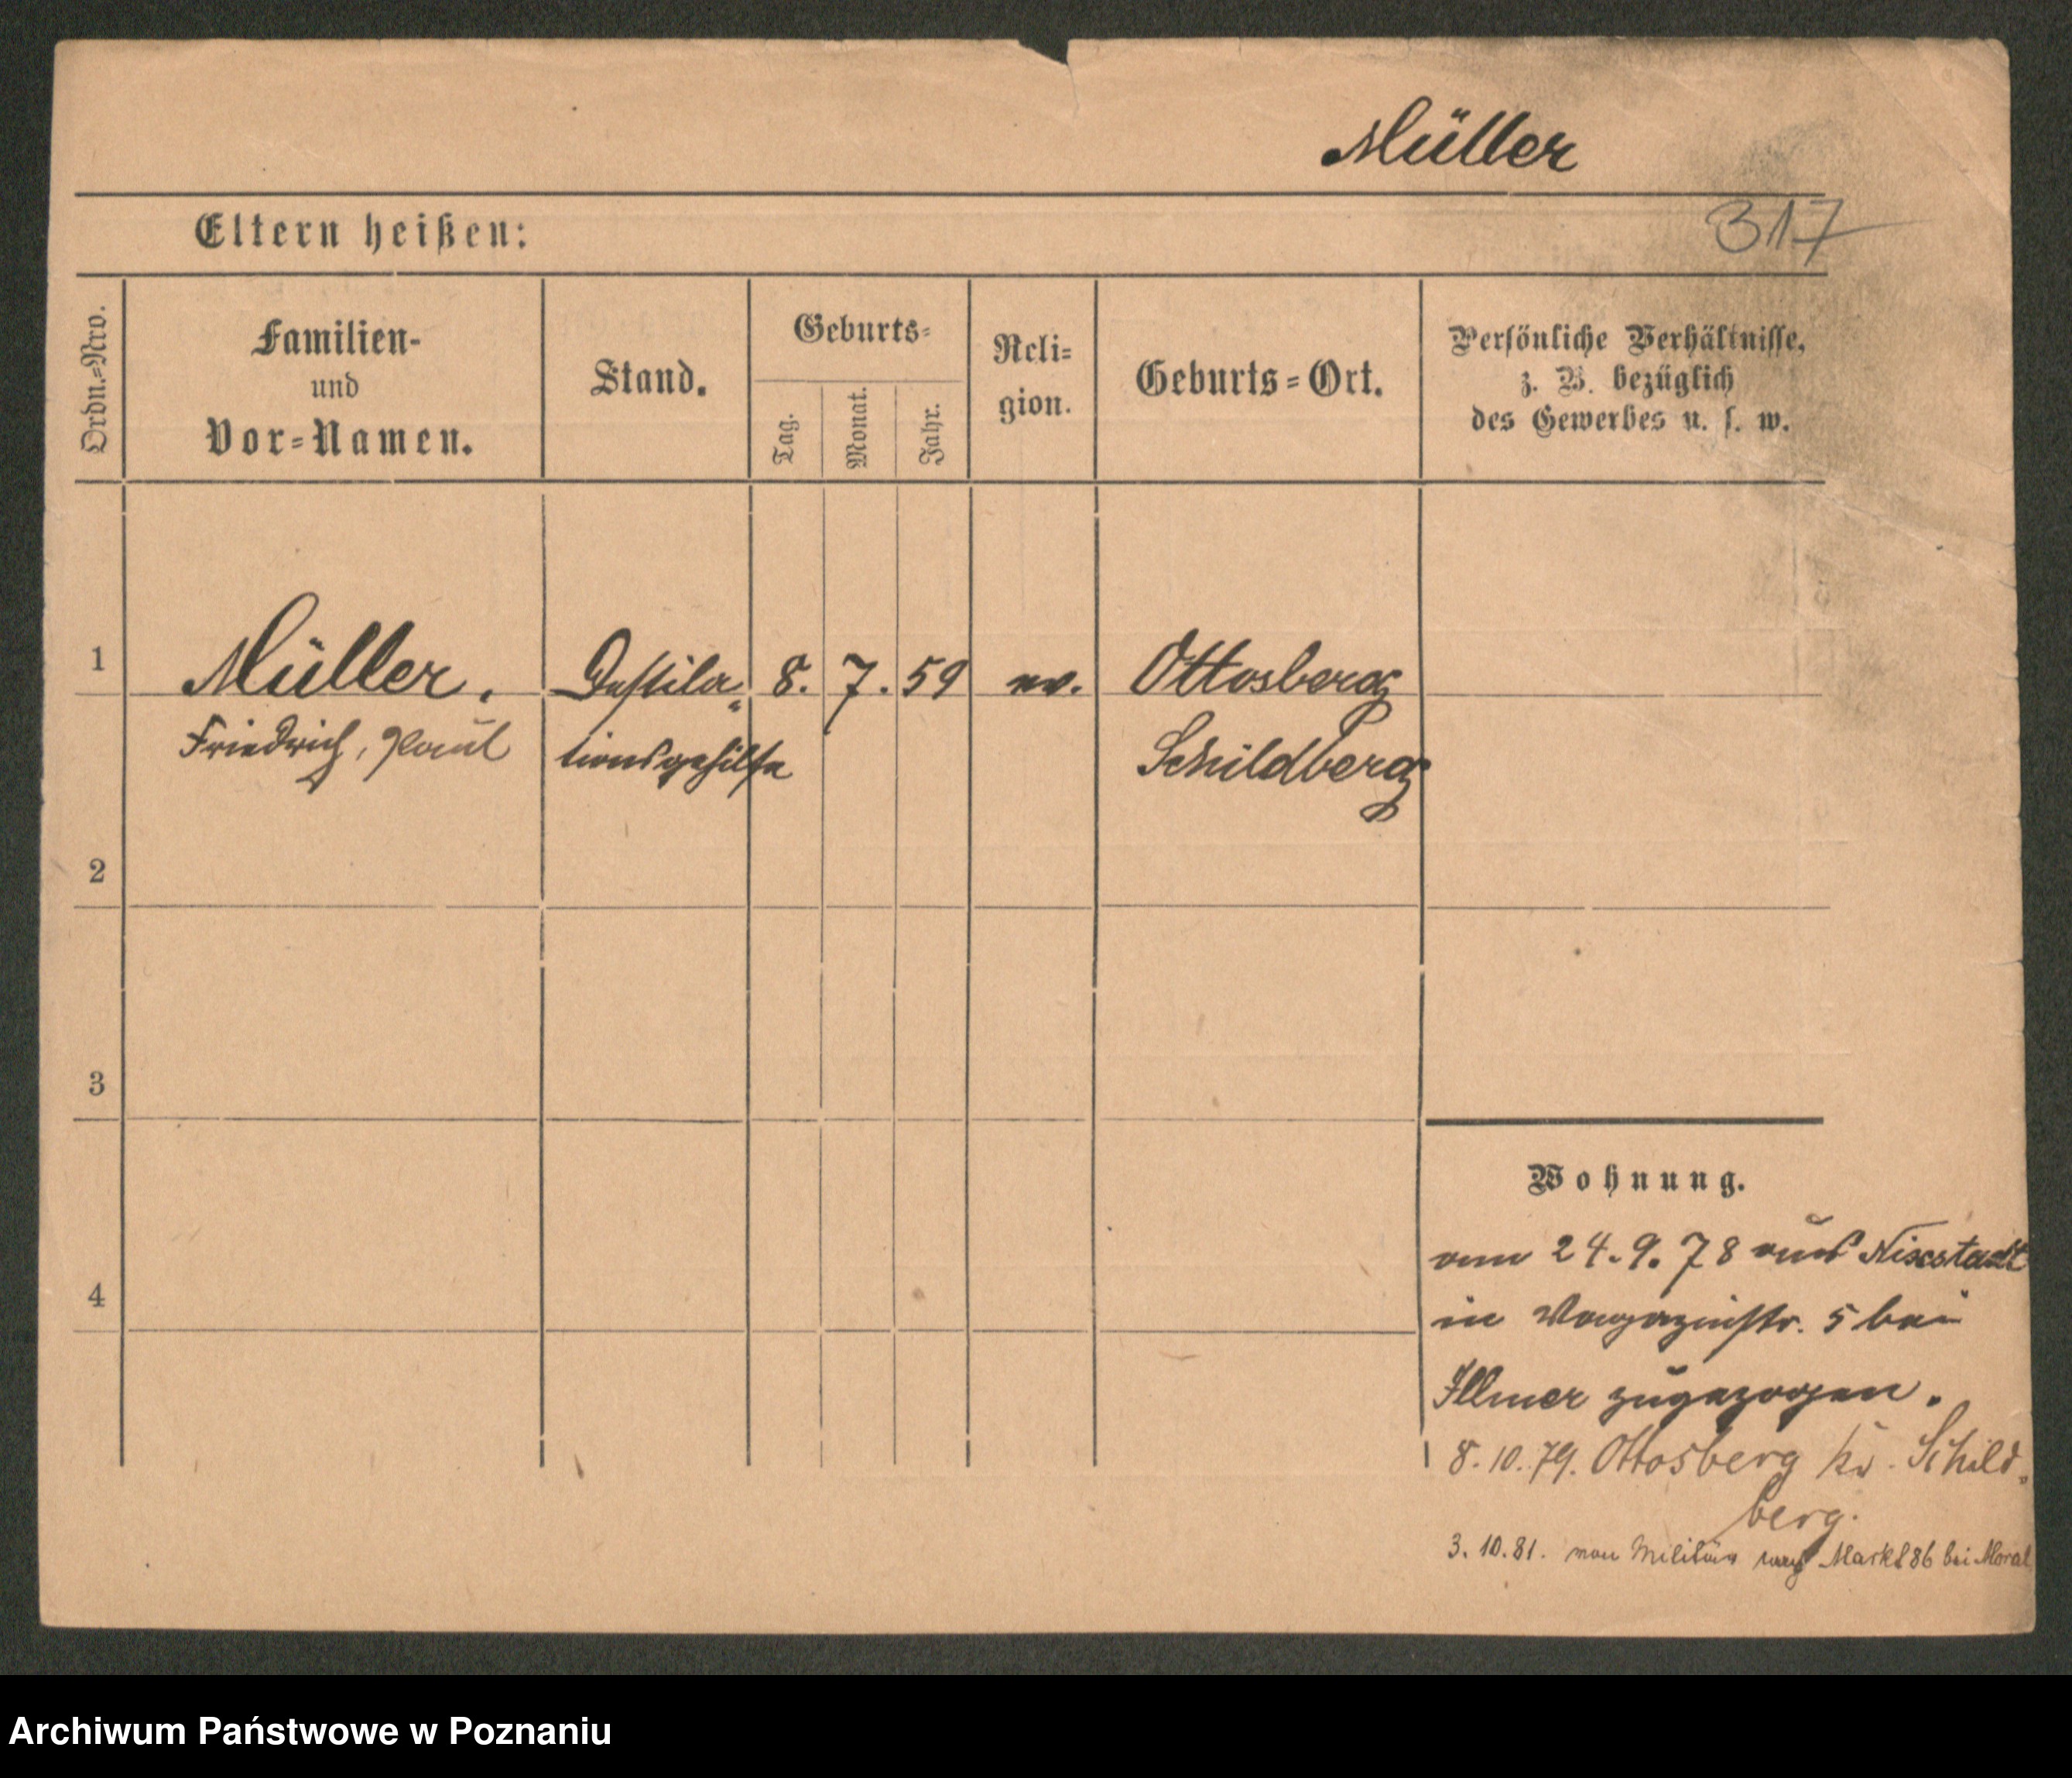 Müller
Eltern heißen:
317
Ordn.=Nro.
Familien-
und
Vor=Namen.
Stand.
Geburts=
Tag.
Monat.
Jahr.
Reli=
gion.
Geburts=Ort.
Persönliche Verhältnisse,
z. B. bezüglich
des Gewerbes u. s. w.
1
Müller.
Destila=
8. 7. 59
ev.
Ottosberg
Friedrich, Paul
tionsgehilfe
Schildberg
2
3
4
Wohnung.
24.9.78 aus
in Magazinstr. 5 bei
Illmer zugezogen.
8.10.79. Ottosberg Kr. Schild=
berg.
3.10.81. vom Militär nach Markt 86 bei Moral
Archiwum Państwowe w Poznaniu